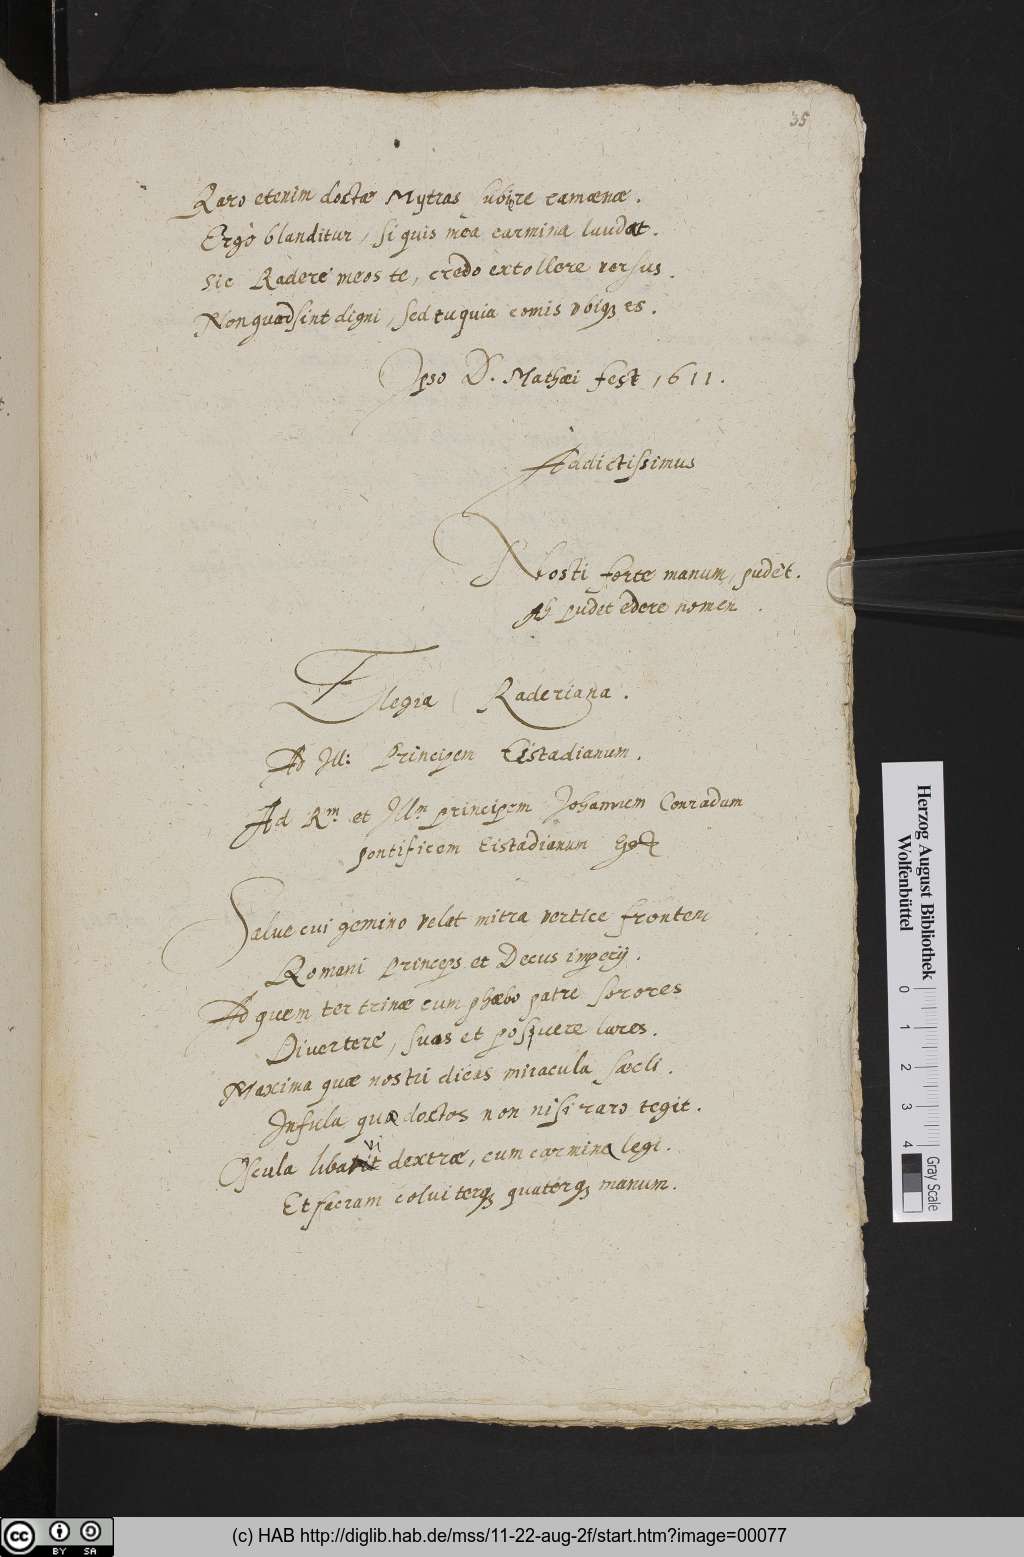 35
Raro etenim doctæ Mytras subire camænæ.
Ergò blanditur, si quis mea carmina laudat.
Sic Radere meos te, credo extollere versus.
Non quod sint digni, sed tu quia comis ubiq; es.
Ipso D. Mathæi fest 1611.
Addictissimus
Nosti forte manum, pudet.
Ah pudet edere nomen.
Elegia Raderiana.
Ad Ill: Principem Eistadianum.
Ad Rm et Illm principem Johannem Conradum
pontificem Eistadianum
Salve cui gemino velat mitra vertice frontem
Romani Princeps et Decus imperij.
Ad quem ter trinæ cum phæbo patre sorores
Divertere, suas et posuere lares.
Maxima quæ nostri dicas miracula sæcli.
Insula quæ doctos non nisi raro tegit.
Oscula libavi dextræ, cum carmina legi.
Et sacram colui terq; quaterq; manum.
Herzog August Bibliothek
Wolfenbüttel
0 1 2 3 4
Gray Scale
cc BY SA
(c) HAB http://diglib.hab.de/mss/11-22-aug-2f/start.htm?image=00077